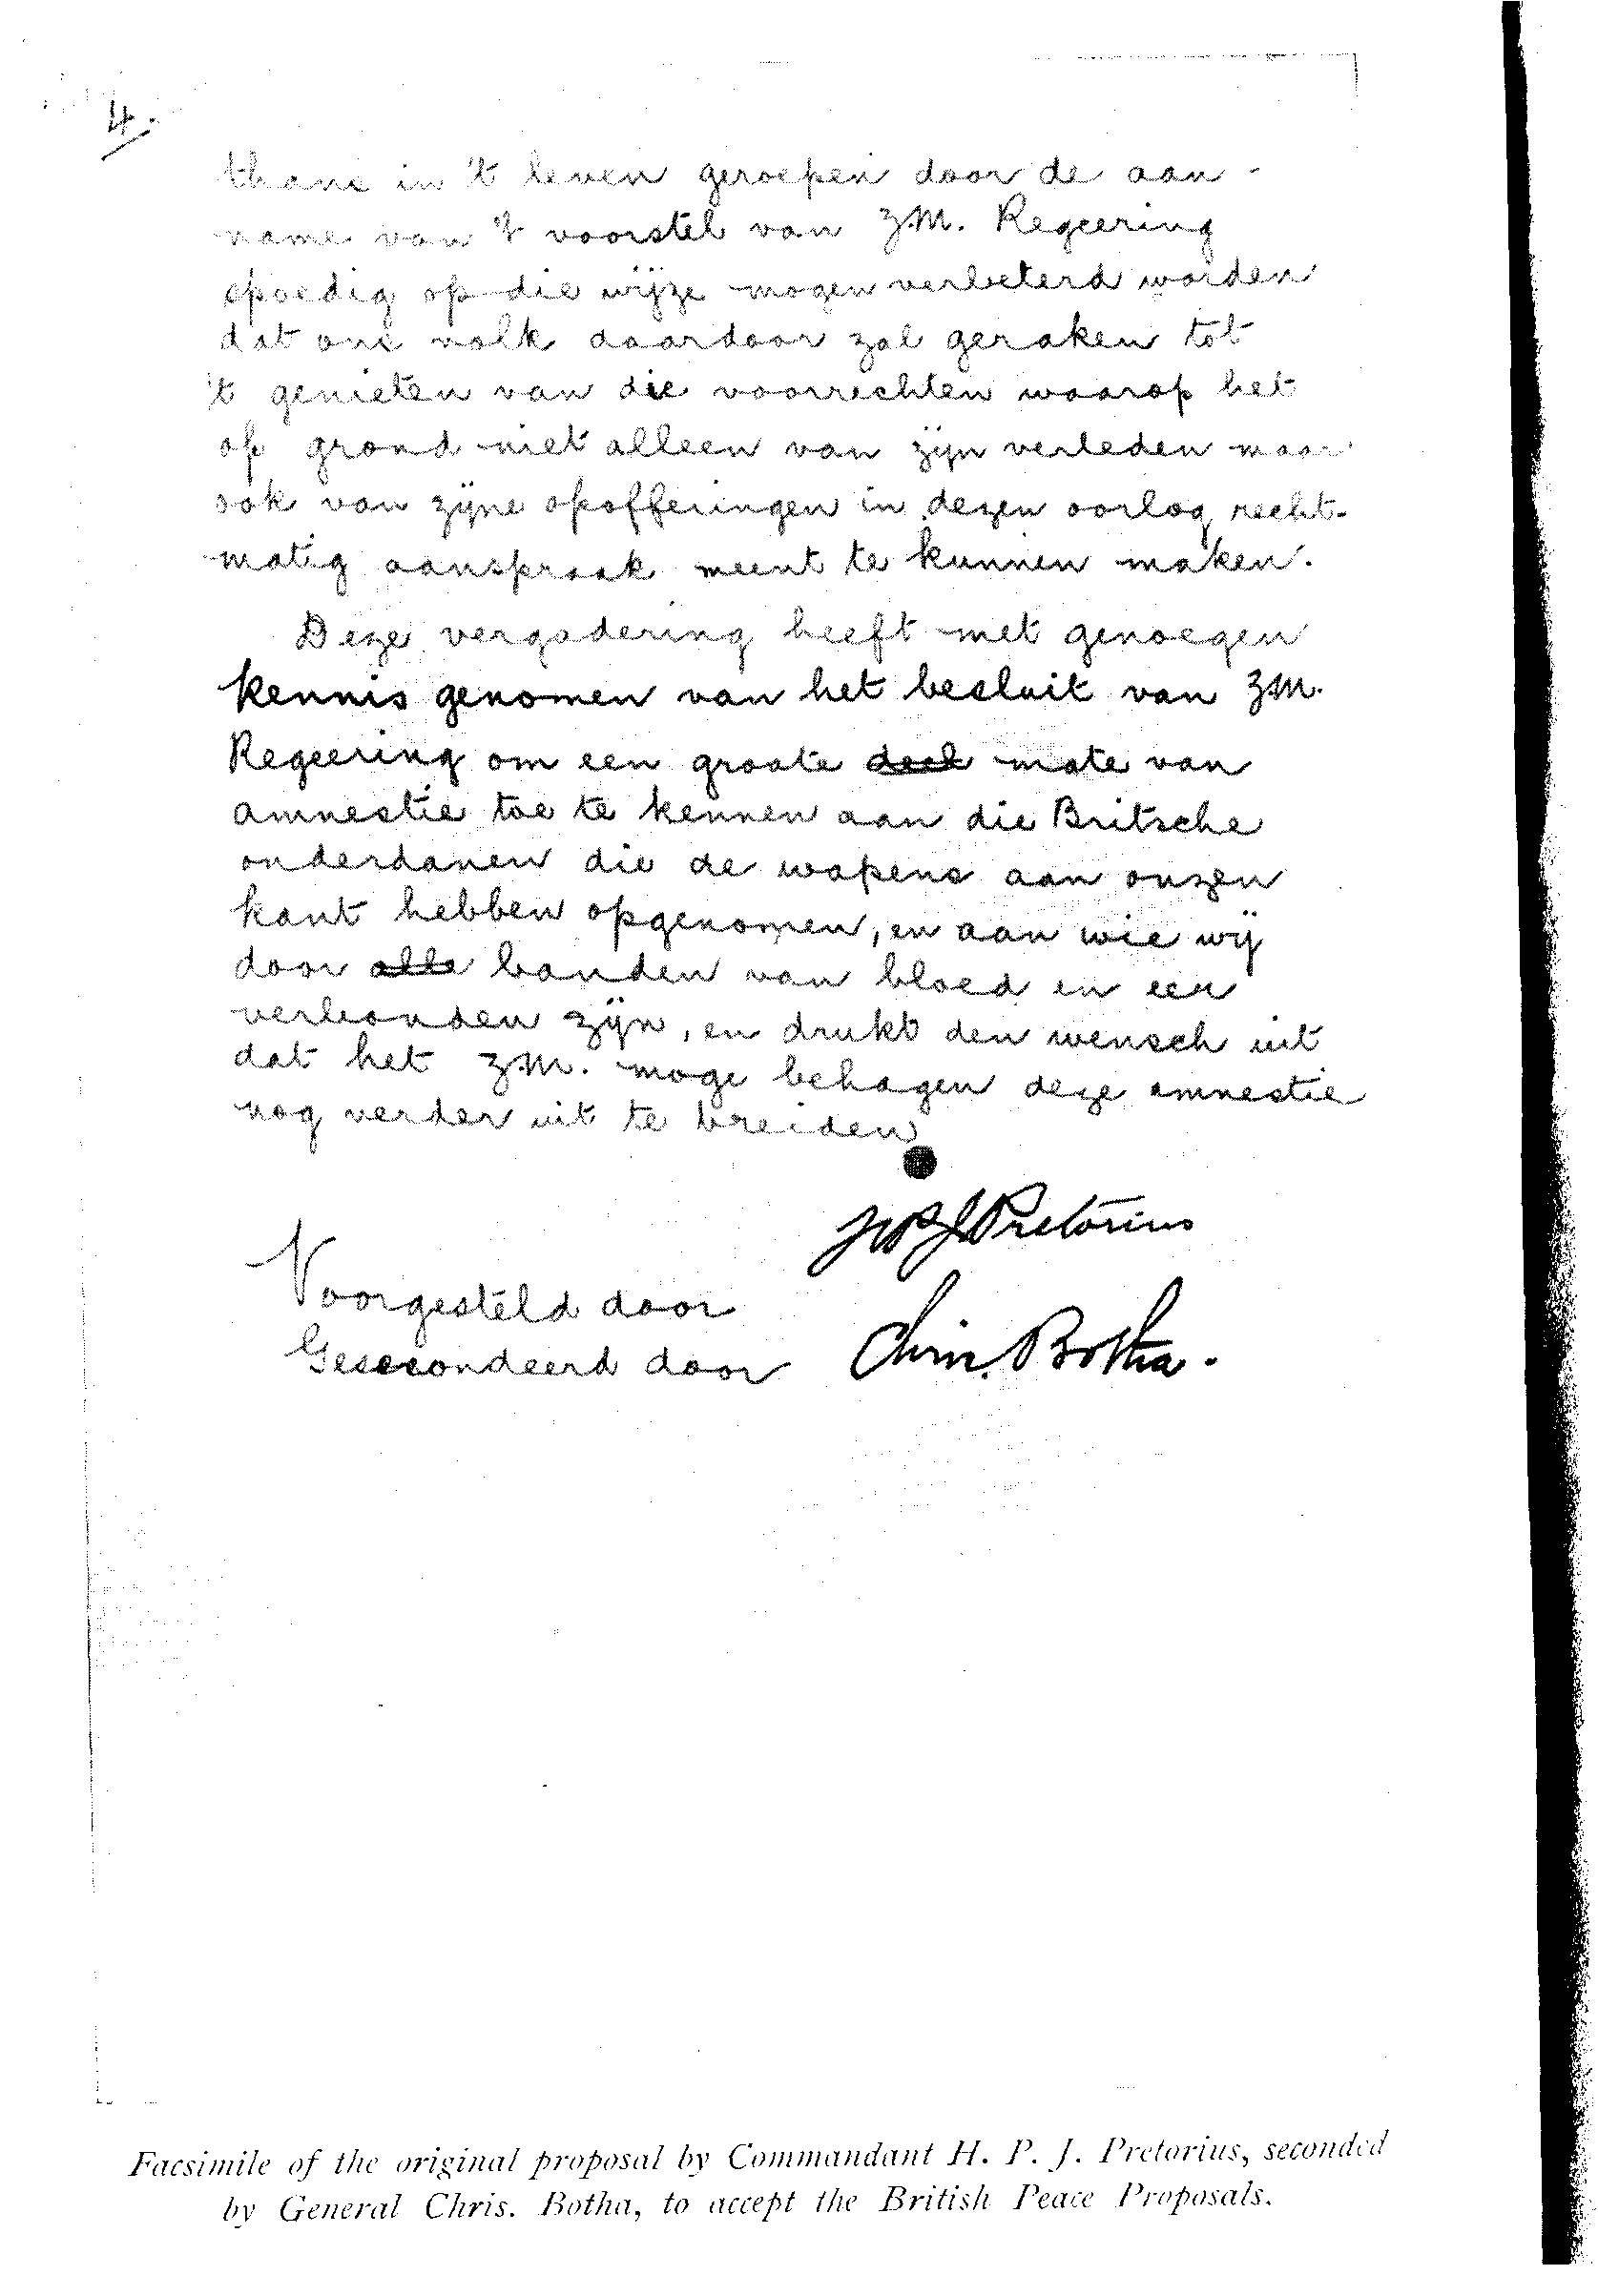 4.
thans in 't leven geroepen door de aan-
name van 't voorstel van Z.M. Regeering
spoedig op die wijze mogen verbeterd worden
dat ons volk daardoor zal geraken tot
't genieten van die voorrechten waarop het
op grond niet alleen van zijn verleden maar
ook van zijne opofferingen in dezen oorlog recht-
matig aanspraak meent te kunnen maken.
Deze vergadering heeft met genoegen
kennis genomen van het besluit van Z.M.
Regeering om een groote deel mate van
amnestie toe te kennen aan die Britsche
onderdanen die de wapens aan onzen
kant hebben opgenomen, en aan wie wij
door alle banden van bloed en eer
verbonden zijn, en drukt den wensch uit
dat het Z.M. moge behagen deze amnestie
nog verder uit te breiden
HPJ Pretorius
Voorgesteld door
Gesecondeerd door Chris. Botha.
Facsimile of the original proposal by Commandant H. P. J. Pretorius, seconded
by General Chris. Botha, to accept the British Peace Proposals.